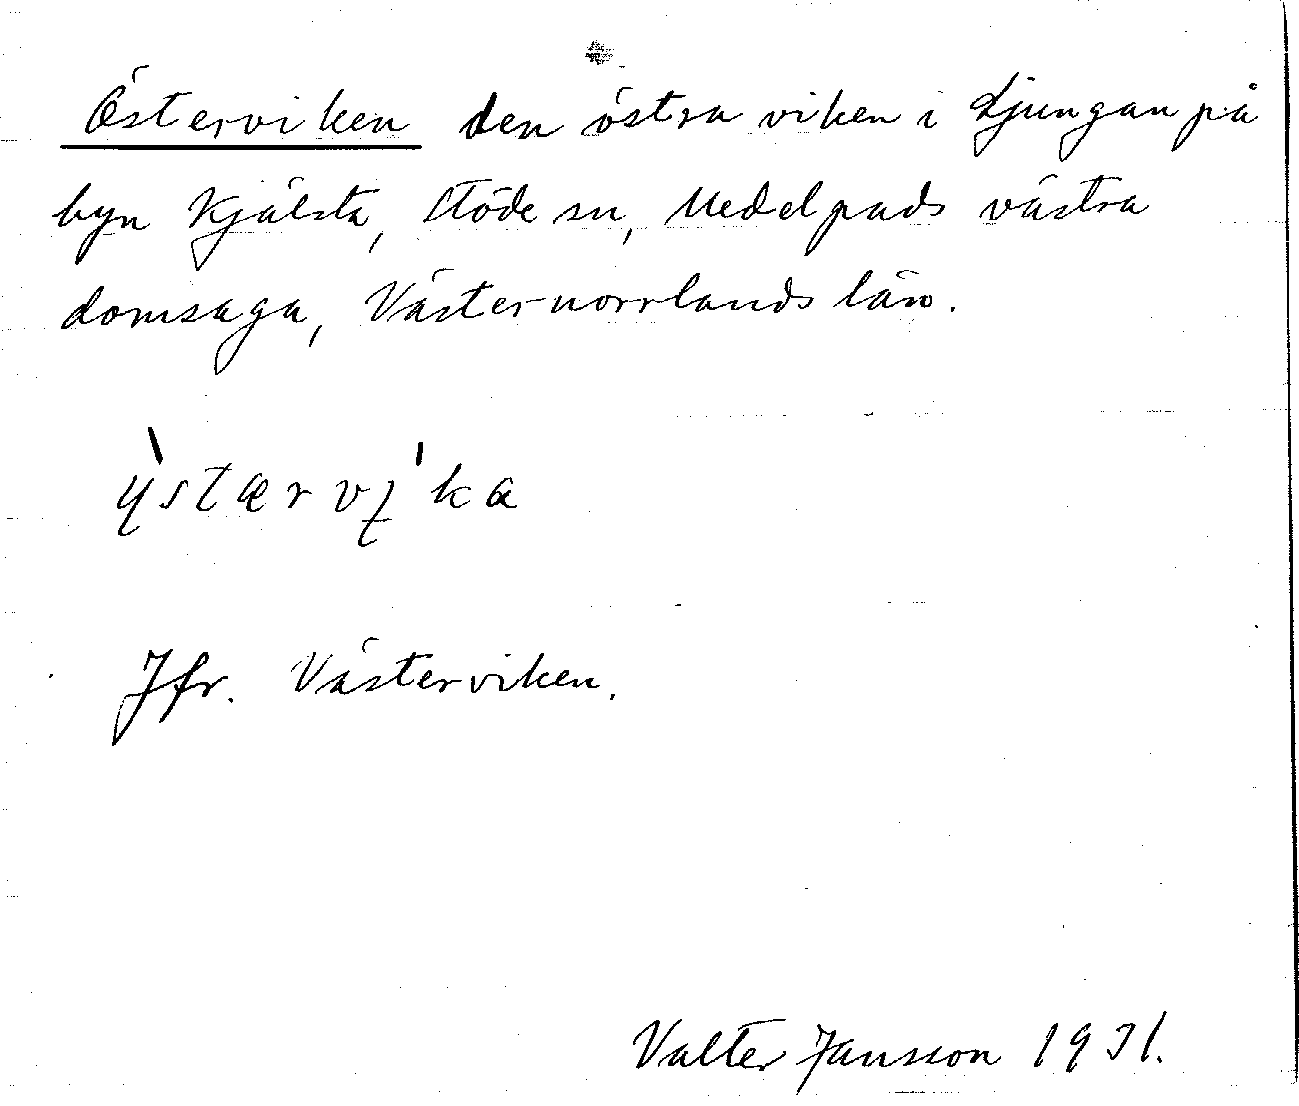 Österviken den östra viken i Ljungan på
byn Kjälsta, Stöde sn, Medelpads västra
domsaga, Västernorrlands län.
ỳstærvi̹'ka
Jfr. Västerviken.
Valter Jansson 1931.